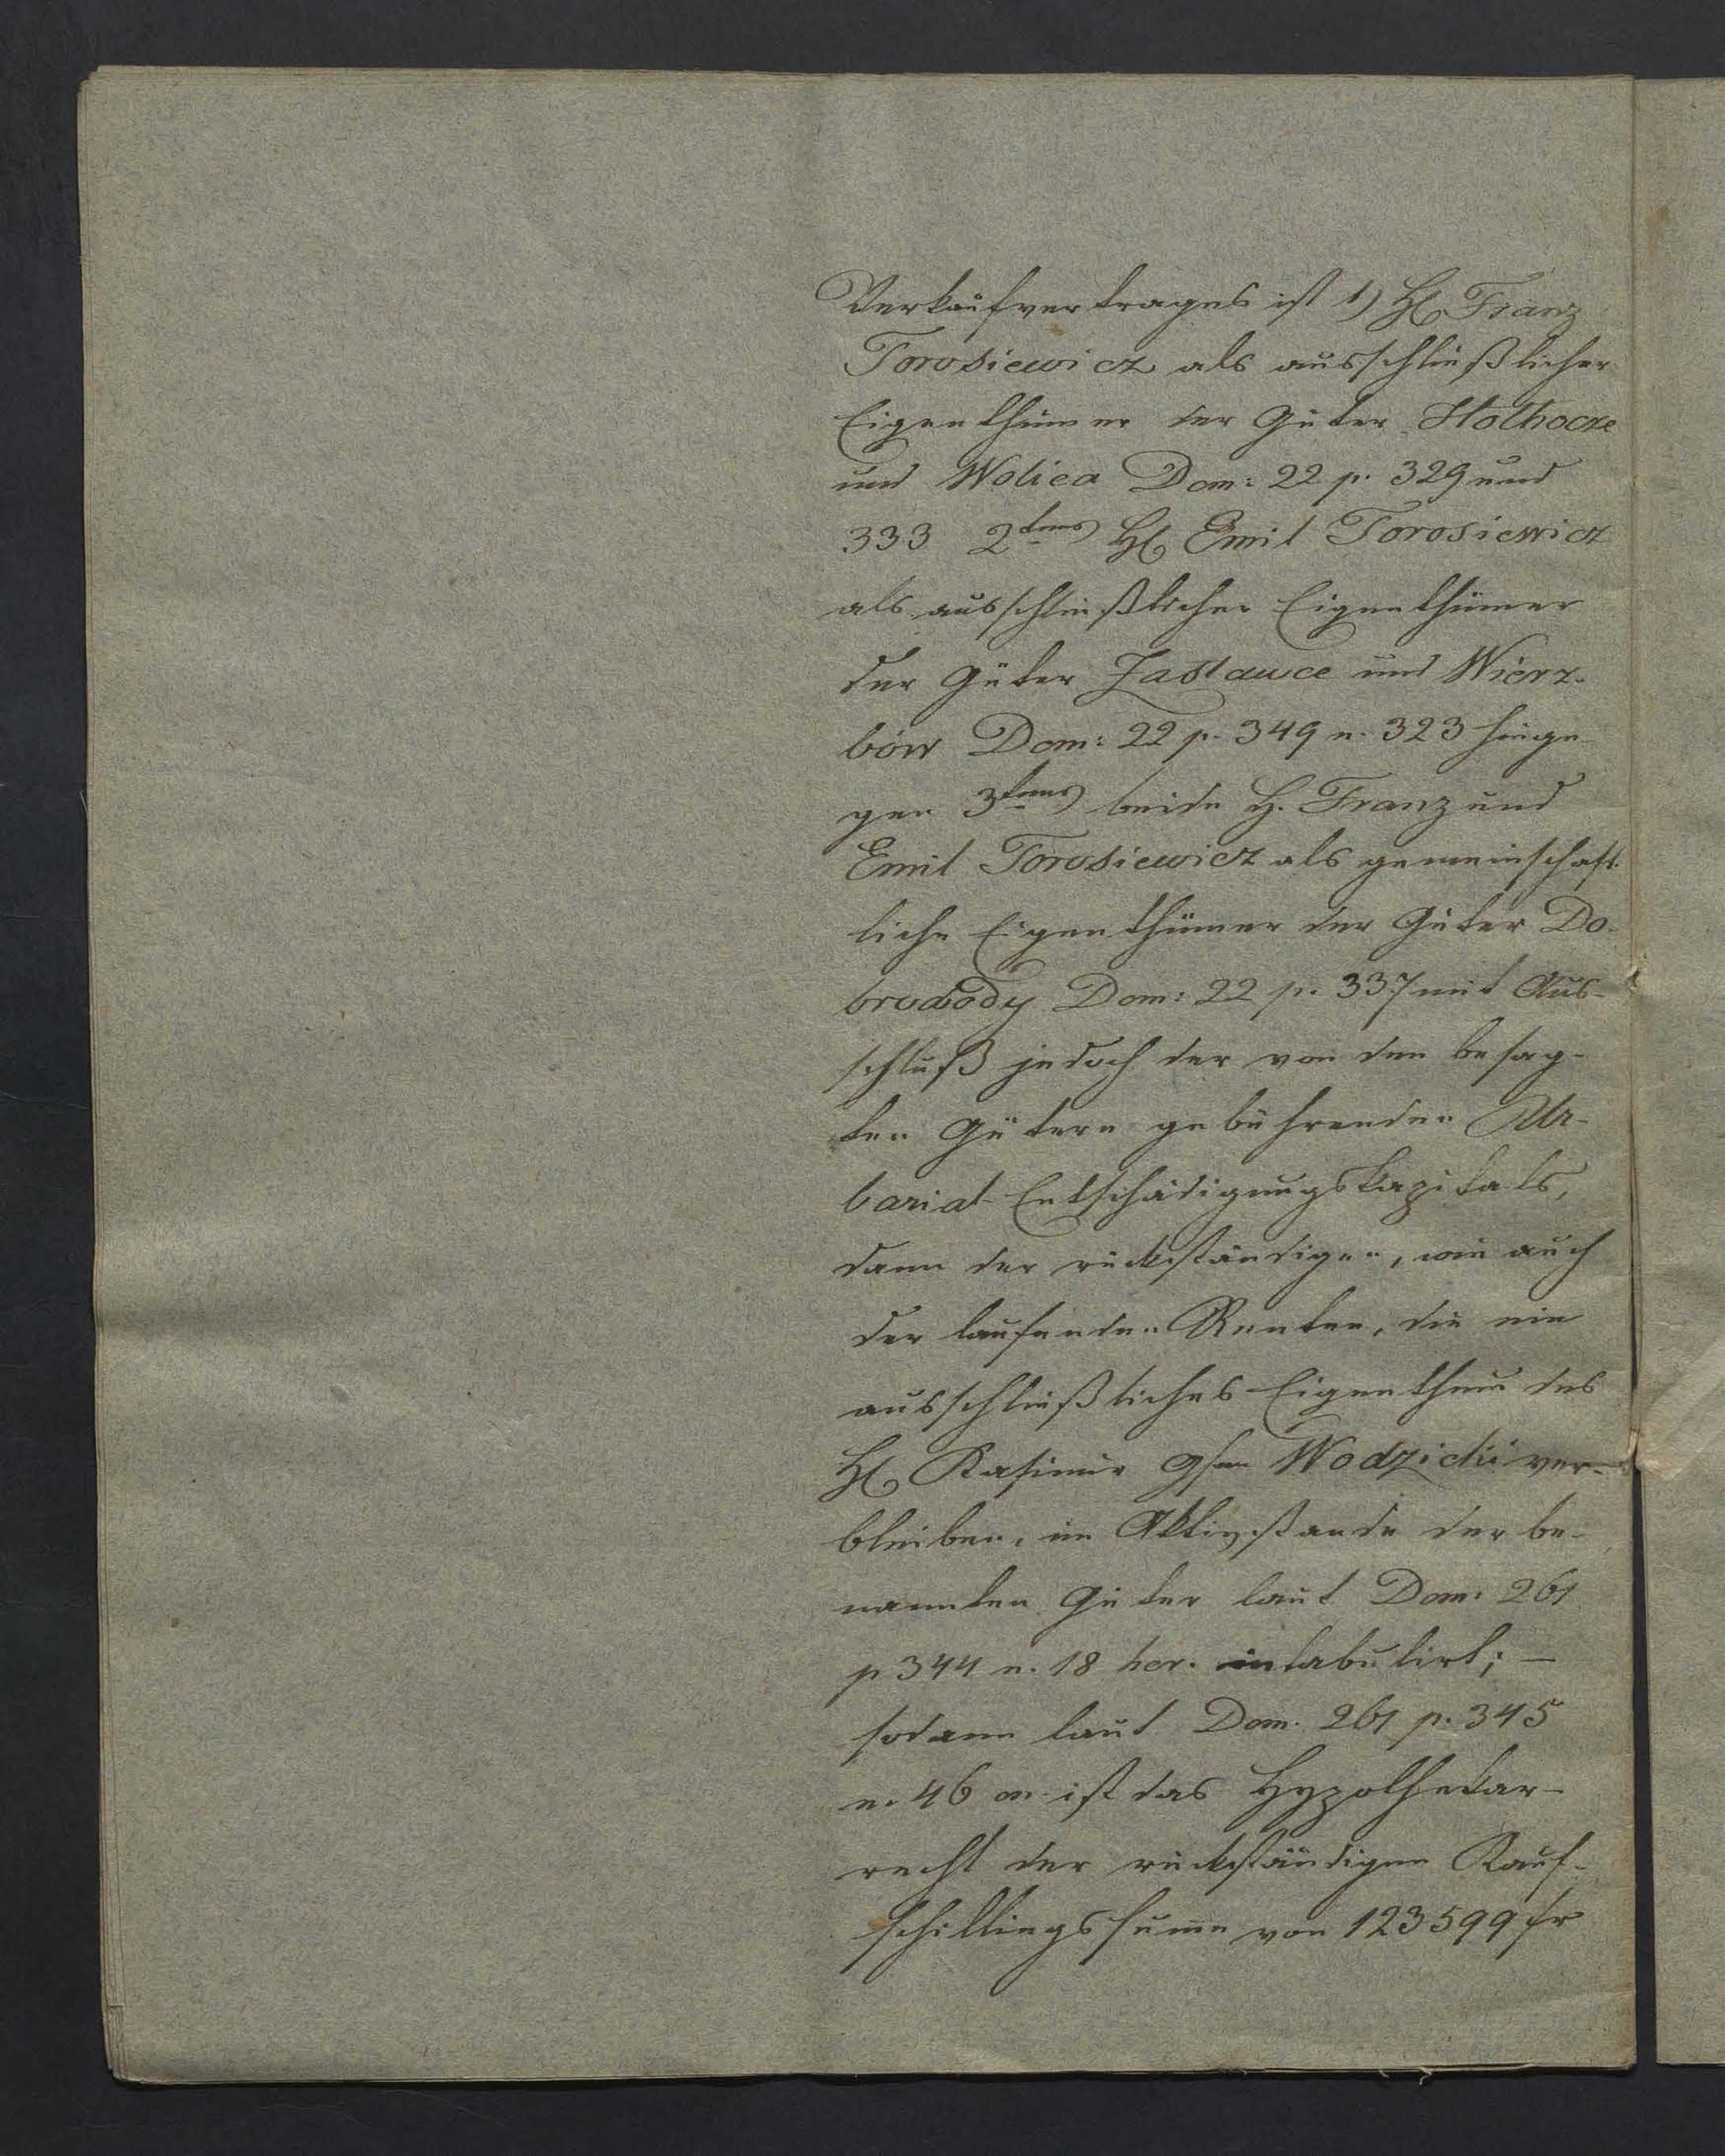 Verkaufvertrages ist 1) H. Franz
Torosiewicz als ausschließlicher
Eigenthümer der Güter Hołhocze
und Wolica Dom: 22 p. 329 und
333 2tens H. Emil Torosiewicz
als ausschließlicher Eigenthümer
der Güter Zastawce und Wierz-
bów Dom: 22 p. 349 n. 323 hinge-
gen 3tens beide H. Franz und
Emil Torosiewicz als gemeinschaft-
liche Eigenthümer der Güter Do-
browody Dom: 22 p. 337 mit Aus-
schluß jedoch der von den besag-
ten Gütern gebührenden Ur-
barial-Entschädigungskapitals,
dann der rückständigen, wie auch
der laufenden Renten, die ein
ausschließliches Eigenthum des
H. Kasimir Gfen Wodzicki ver-
bleiben, im Aktivstande der be-
nannten Güter laut Dom: 261
p 344 n. 18 her. intabulirt; —
sodann laut Dom. 261 p. 345
n. 46 on ist das Hypothekar-
recht der rückständigen Kauf-
schillingssumme von 123599 fr